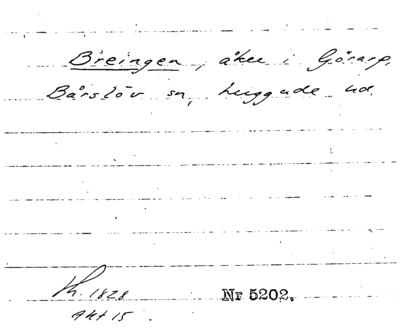 Breingen, åker i Görarp,
Bårslöv sn, Luggude hd.
Kh. 1828
Akt 15.
Nr 5202.